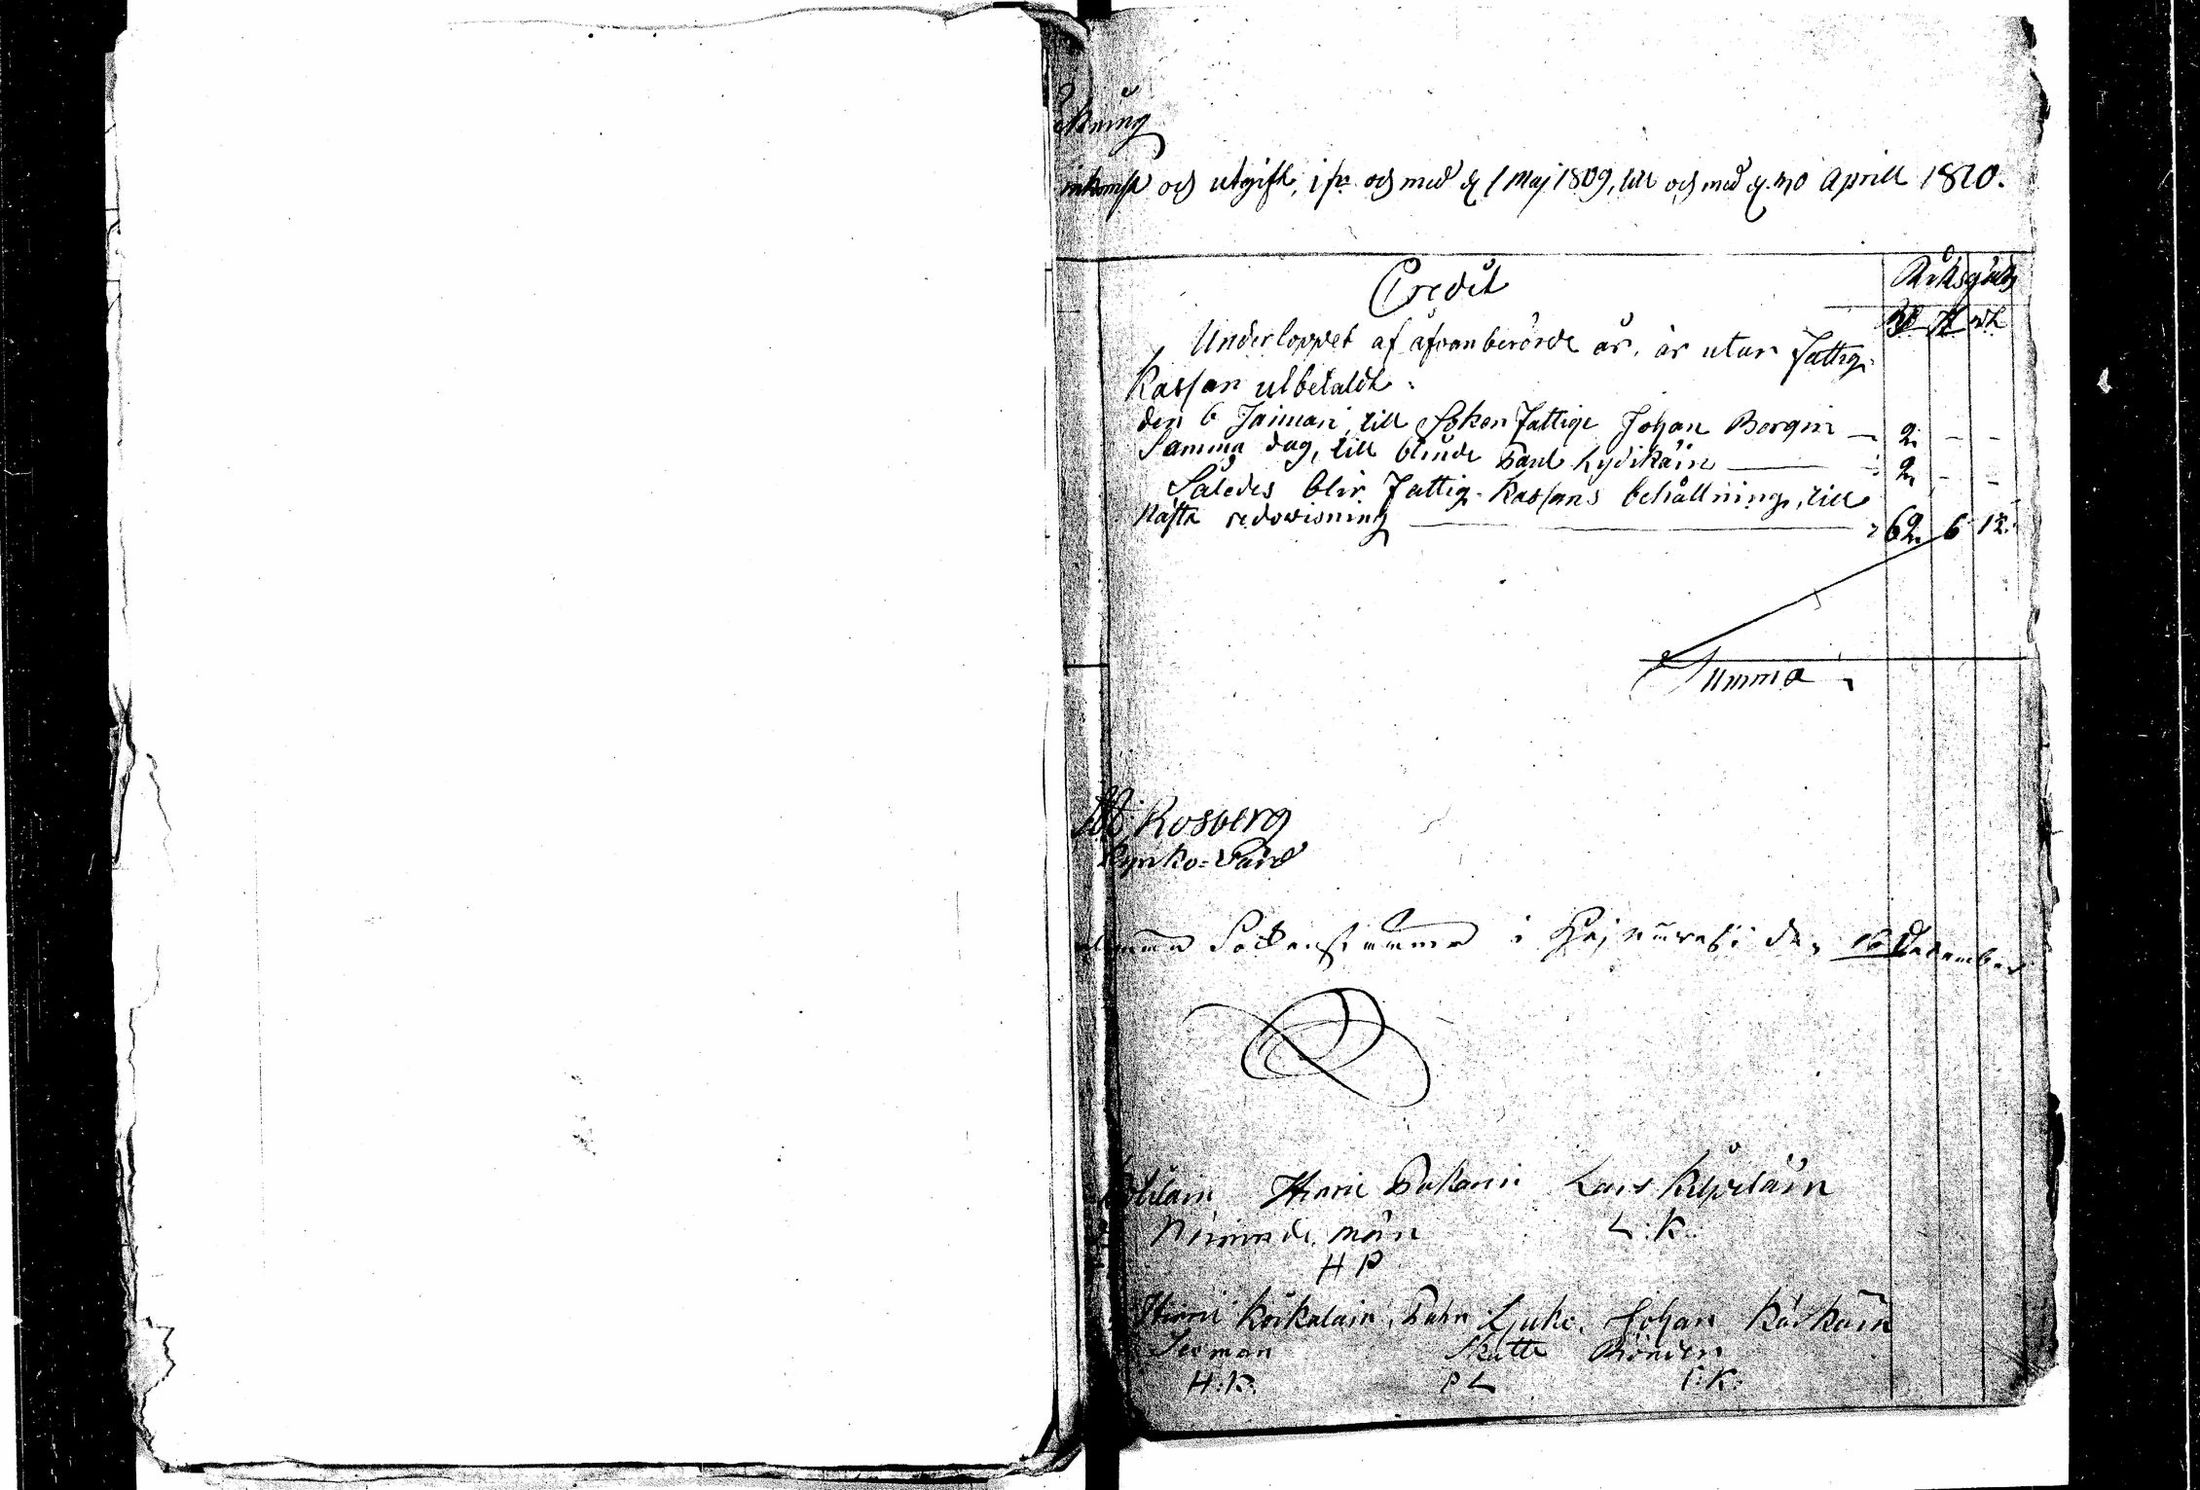 ekning
inkomst och utgift, ifr. och med d. 1 Maj 1809, till och med d. 30 Aprill 1810.
Credit
Riksgäldz
Rd ß rst
Underloppet af åfvanberörde år, är utur Fattig-
Kassan utbetaldt.
den 6 Januari, till Soken fattige Johan Borgin — 2. – –
Samma dag, till blinde Paul Lydikäin — 2. – –
Således blir Fattig-Kassans behållning, till
nästa redovisning — 62. 6 12.
Summa
Rosberg
Kyrko-Värd
Sockenstämma i den 16 December
Hinric Pakarin Lars Kilpeläin
Nämndemän L:K:
H P
Hinric Johan
Sexman Skatte Bönder
H:K: P L I:K: